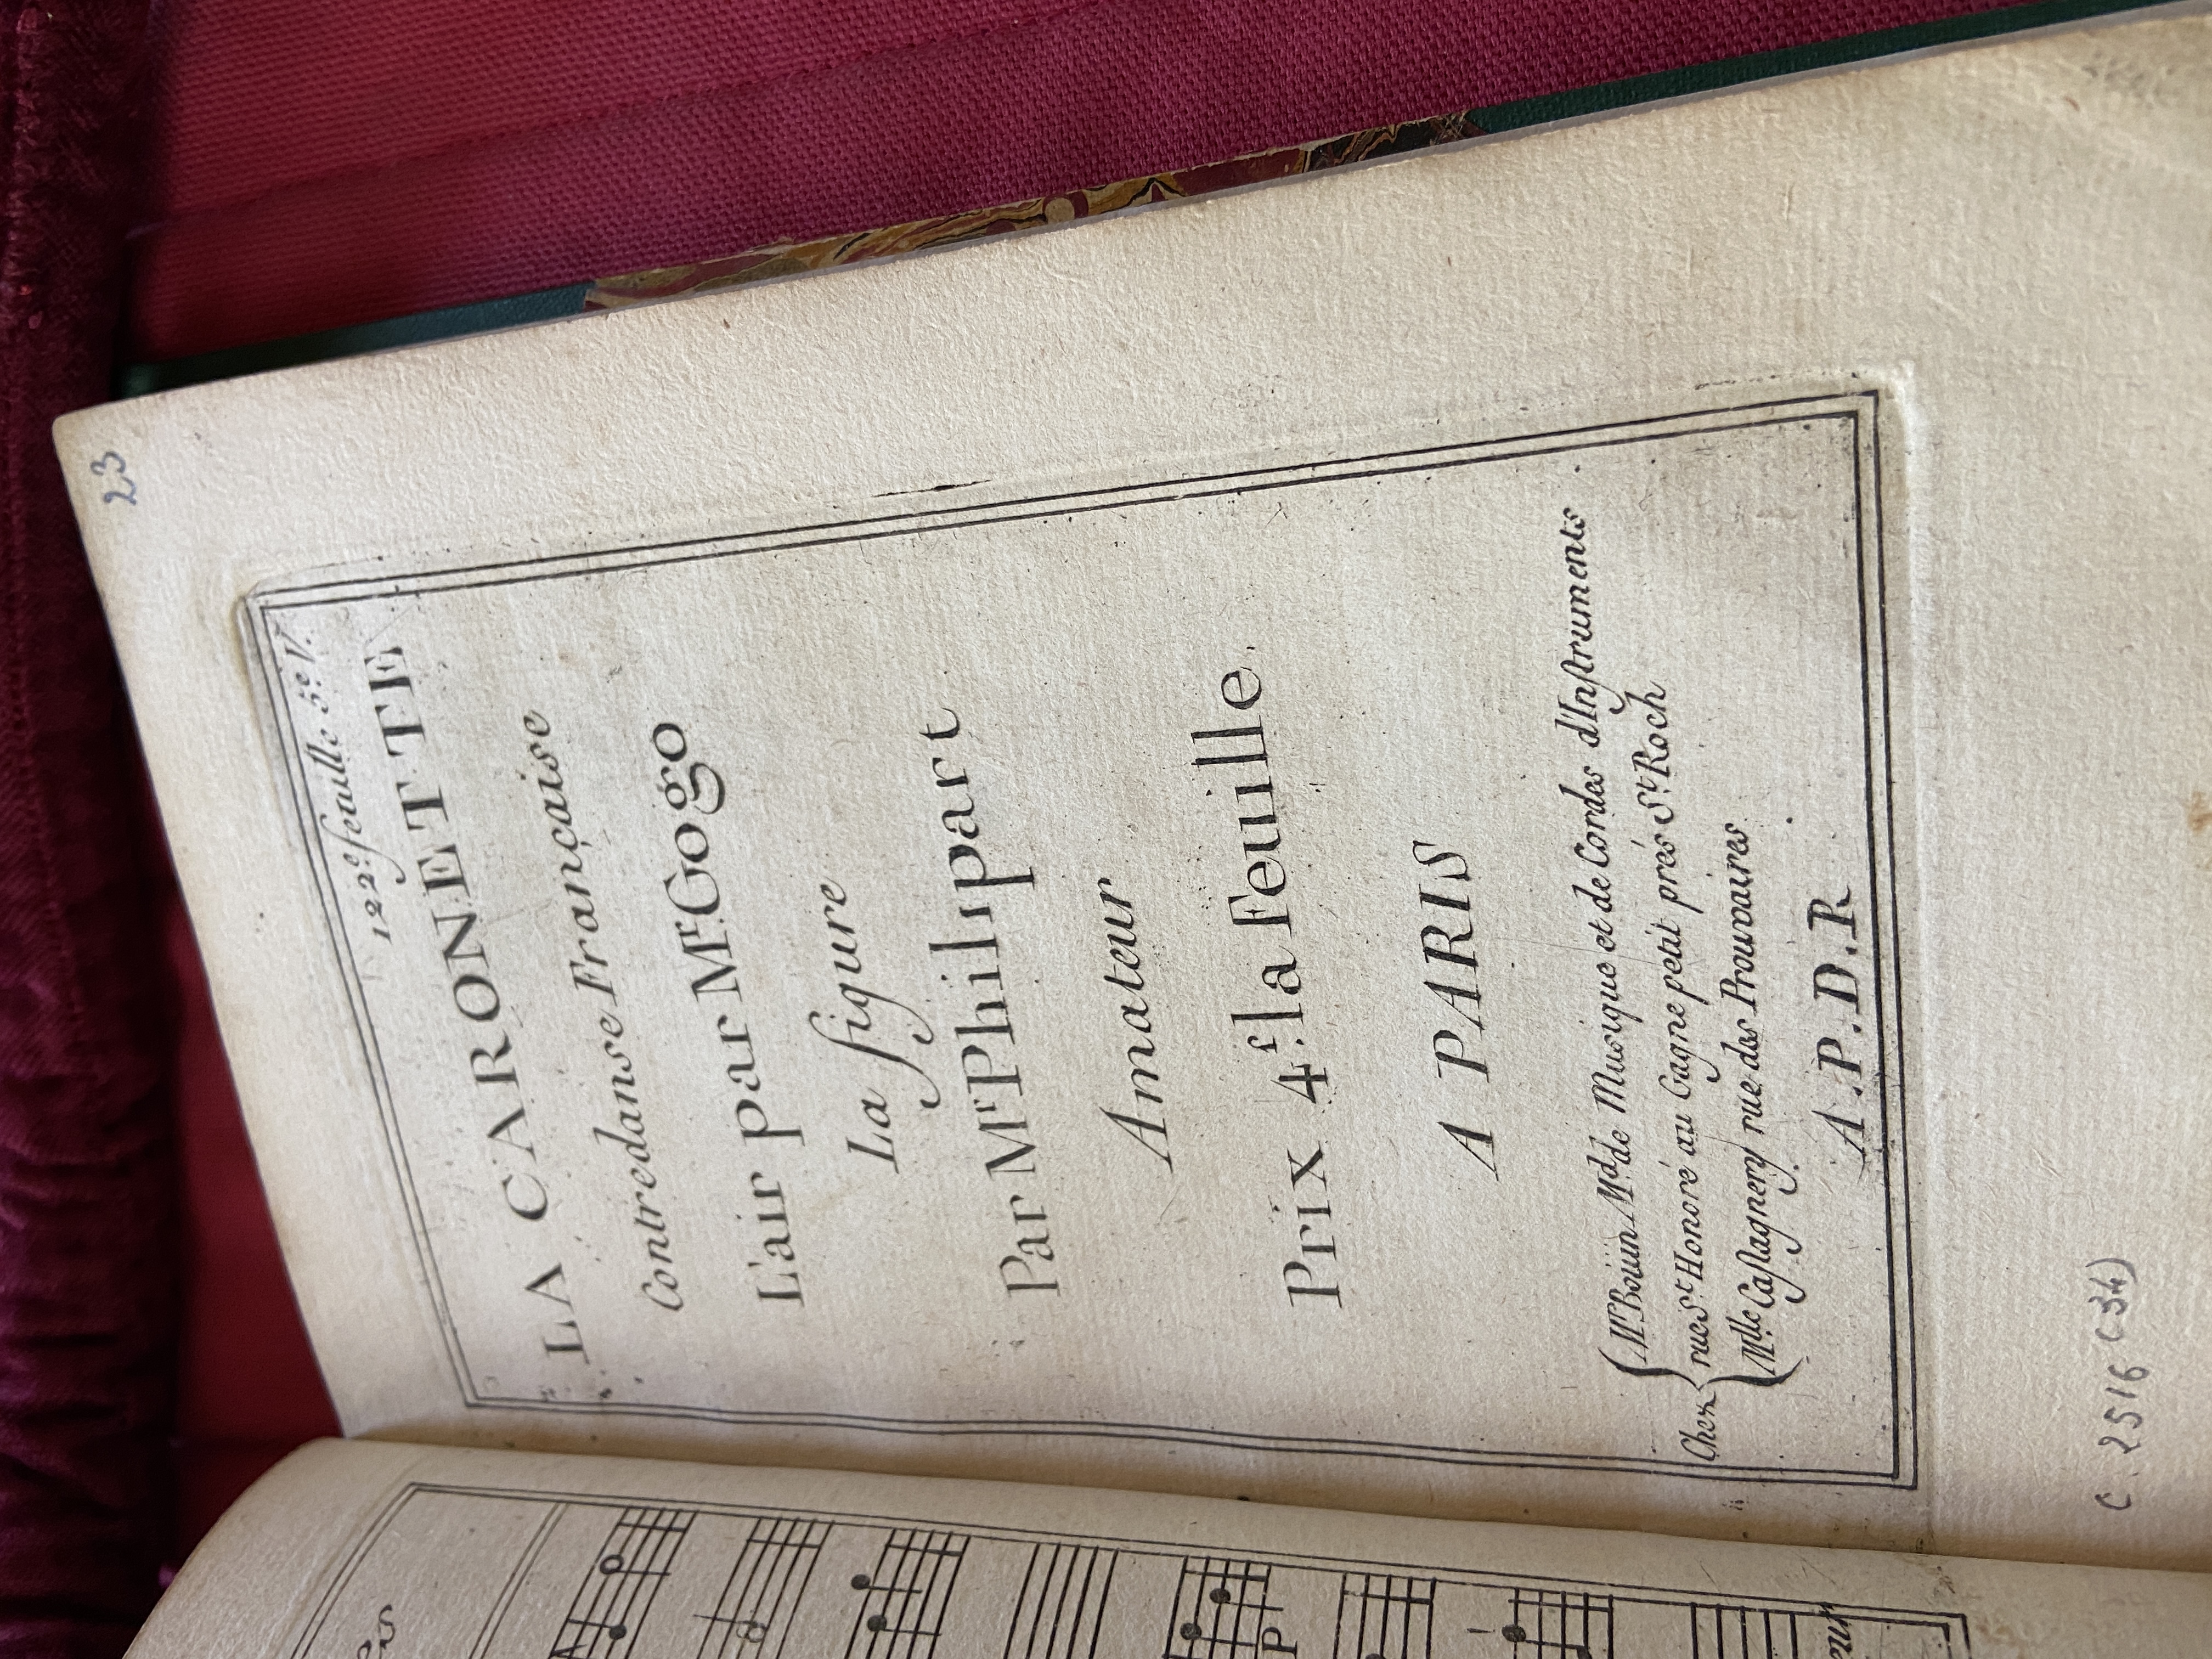 23
122.e feuille 5.e V.
LA CARONETTE
Contredanse Française
L'air par Mr. Gogo
La figure
Par Mr. Philippart
Amateur
Prix 4.f la Feuille.
A PARIS
Chez
Mr. Boüin Md. de Musique et de Cordes d'Instruments
rue St. Honoré au Gagne petit prés St. Roch
Mlle. Castagnery rue des Prouvaires.
A.P.D.R.
C. 2516 (34)
P